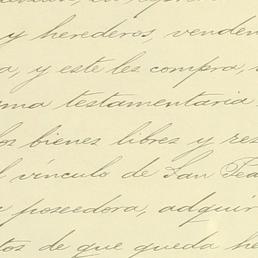 y herederos, venden
a, y este les compra,
ma testamentaria
los bienes libres y res
l vínculo de San Fea
poseedora, adquir
tos de que queda he